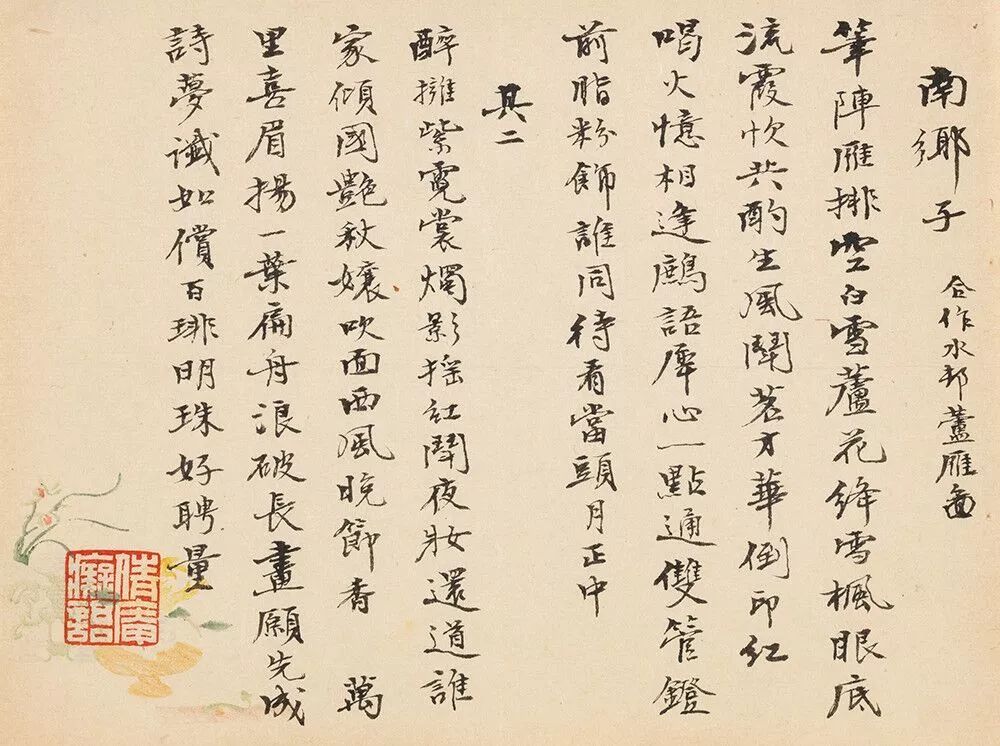 南鄉子 合作水邨蘆雁圖
筆陣雁排空白雪蘆花絳雪楓眼底
流霞欣共酌生風鬪茗才華倒印紅
喝火憶相逢語犀心一點通雙管鐙
前脂粉飾誰同待看當頭月正中
其二
醉擁紫霓裳燭影搖紅鬪夜妝還道誰
家傾國艷秋孃吹面西風晚節香 萬
里喜眉揚一葉扁舟浪破長畫願先成
詩夢讖如償百琲明珠好聘量
倩庵癡語